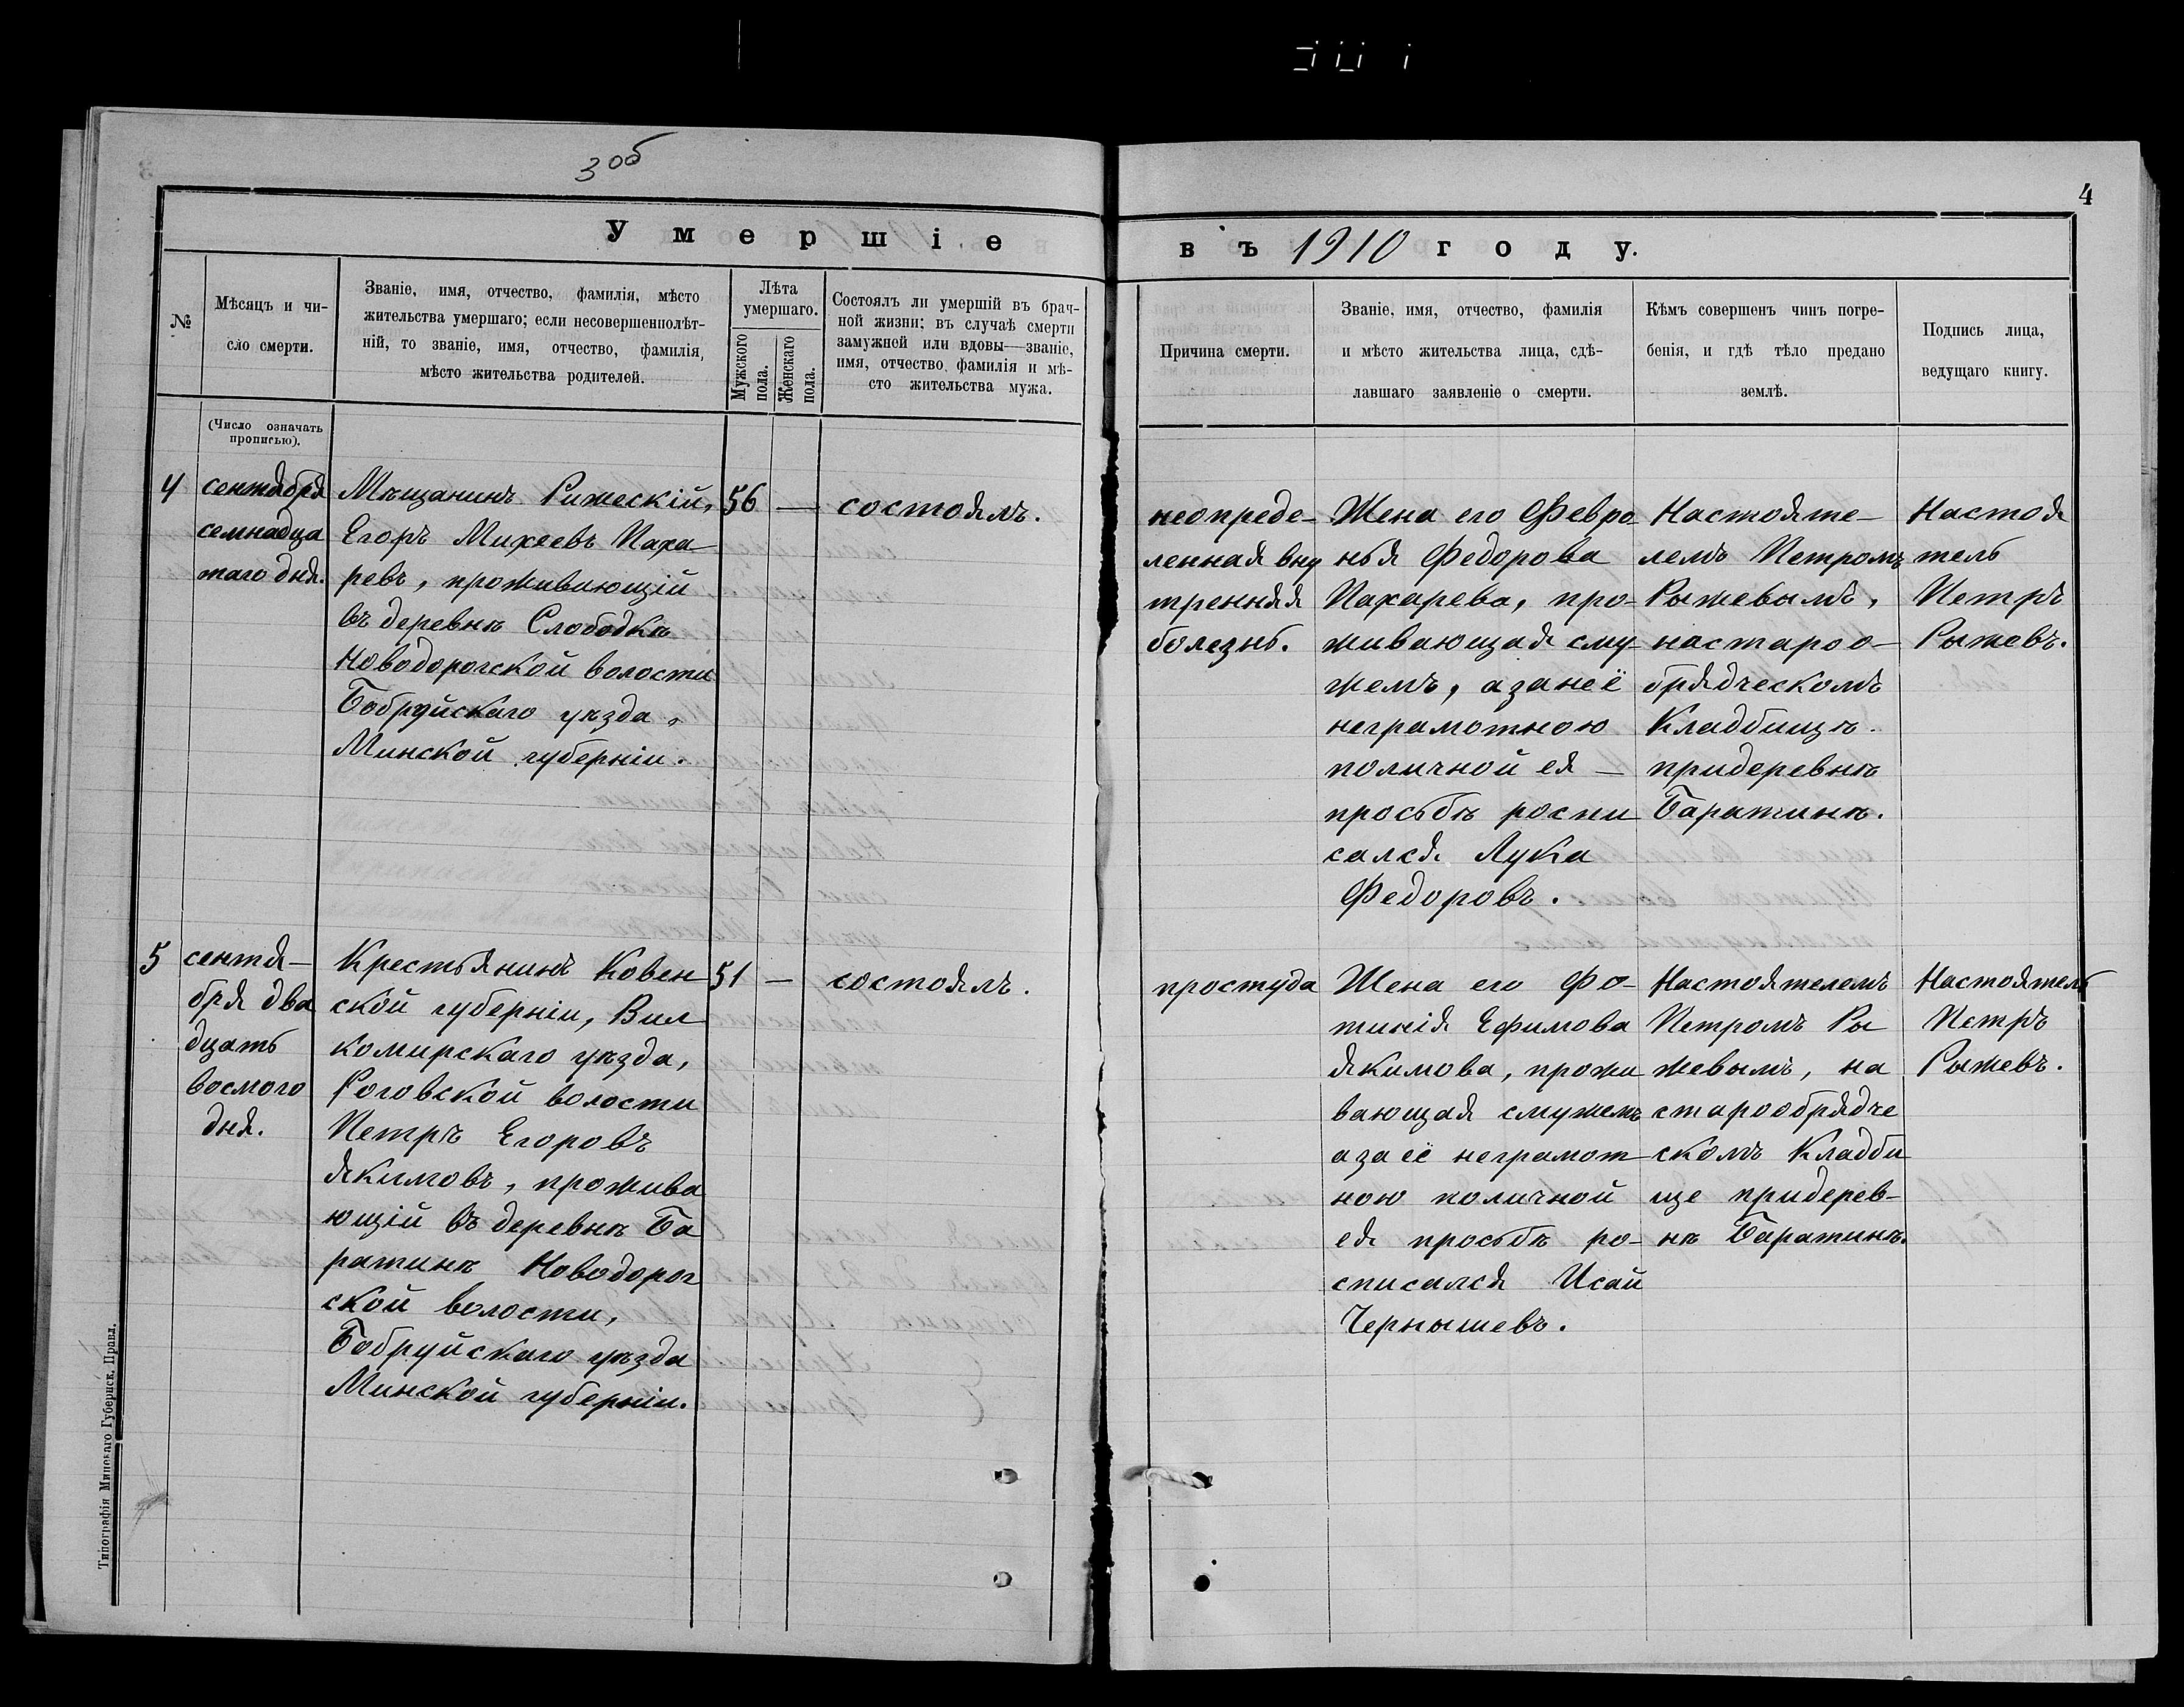 3 об
4
Умершіе
въ 1910 году.
№
Мѣсяцъ и чи-
сло смерти.
Званіе, имя, отчество, фамилія, мѣсто
жительства умершаго; если несовершеннолѣт-
ній, то званіе, имя, отчество, фамилія,
мѣсто жительства родителей.
Лѣта
умершаго.
Мужского
пола.
Женскаго
пола.
Состоялъ ли умершій въ брач-
ной жизни; въ случаѣ смерти
замужней или вдовы—званіе,
имя, отчество, фамилія и мѣ-
сто жительства мужа.
Причина смерти.
Званіе, имя, отчество, фамилія
и мѣсто жительства лица, сдѣ-
лавшаго заявленіе о смерти.
Кѣмъ совершенъ чинъ погре-
бенія, и гдѣ тѣло предано
землѣ.
Подпись лица,
ведущаго книгу.
(Число означать
прописью).
4
сентября
семнадца
таго дня.
Мѣщанинъ Рижескій,
Егоръ Михеевъ Паха
ревъ, проживающій
въ деревнѣ Слободкѣ
Новодорогской волости
Бобруйскаго уѣзда,
Минской губерніи.
56
—
состоялъ.
неопреде-
ленная вну
тренняя
болезнь.
Жена его Февро
нья Федорова
Пахарева, про-
живающая сму-
жемъ, азанеё
неграмотною
поличной ея —
просьбѣ роспи
сался Лука
Федоровъ.
Настояте-
лемъ Петромъ
Рыжевымъ,
настароо-
брядческомъ
Кладбищѣ
придеревнѣ
Баратинѣ.
Настоя
тель
Петръ
Рыжевъ.
5
сентя-
бря два
дцать
восмого
дня.
Крестьянинъ Ковен
ской губерніи, Вил
комирскаго уѣзда,
Роговской волости
Петръ Егоровъ
Якимовъ, прожива
ющій въ деревнѣ Ба
ратинѣ Новодорог
ской волости,
Бобруйскаго уѣзда
Минской губерніи.
51
—
состоялъ.
простуда
Жена его Фо-
тинія Ефимова
Якимова, прожи
вающая смужемъ
аза её неграмот
ною поличной
ея просьбѣ ро-
списался Исай
Чернышевъ.
Настоятелемъ
Петромъ Ры
жевымъ, на
старообрядче
скомъ Кладби
ще придерев-
нѣ Баратинѣ.
Настоятель
Петръ
Рыжевъ.
Типографія Минскаго Губернск. Правл.